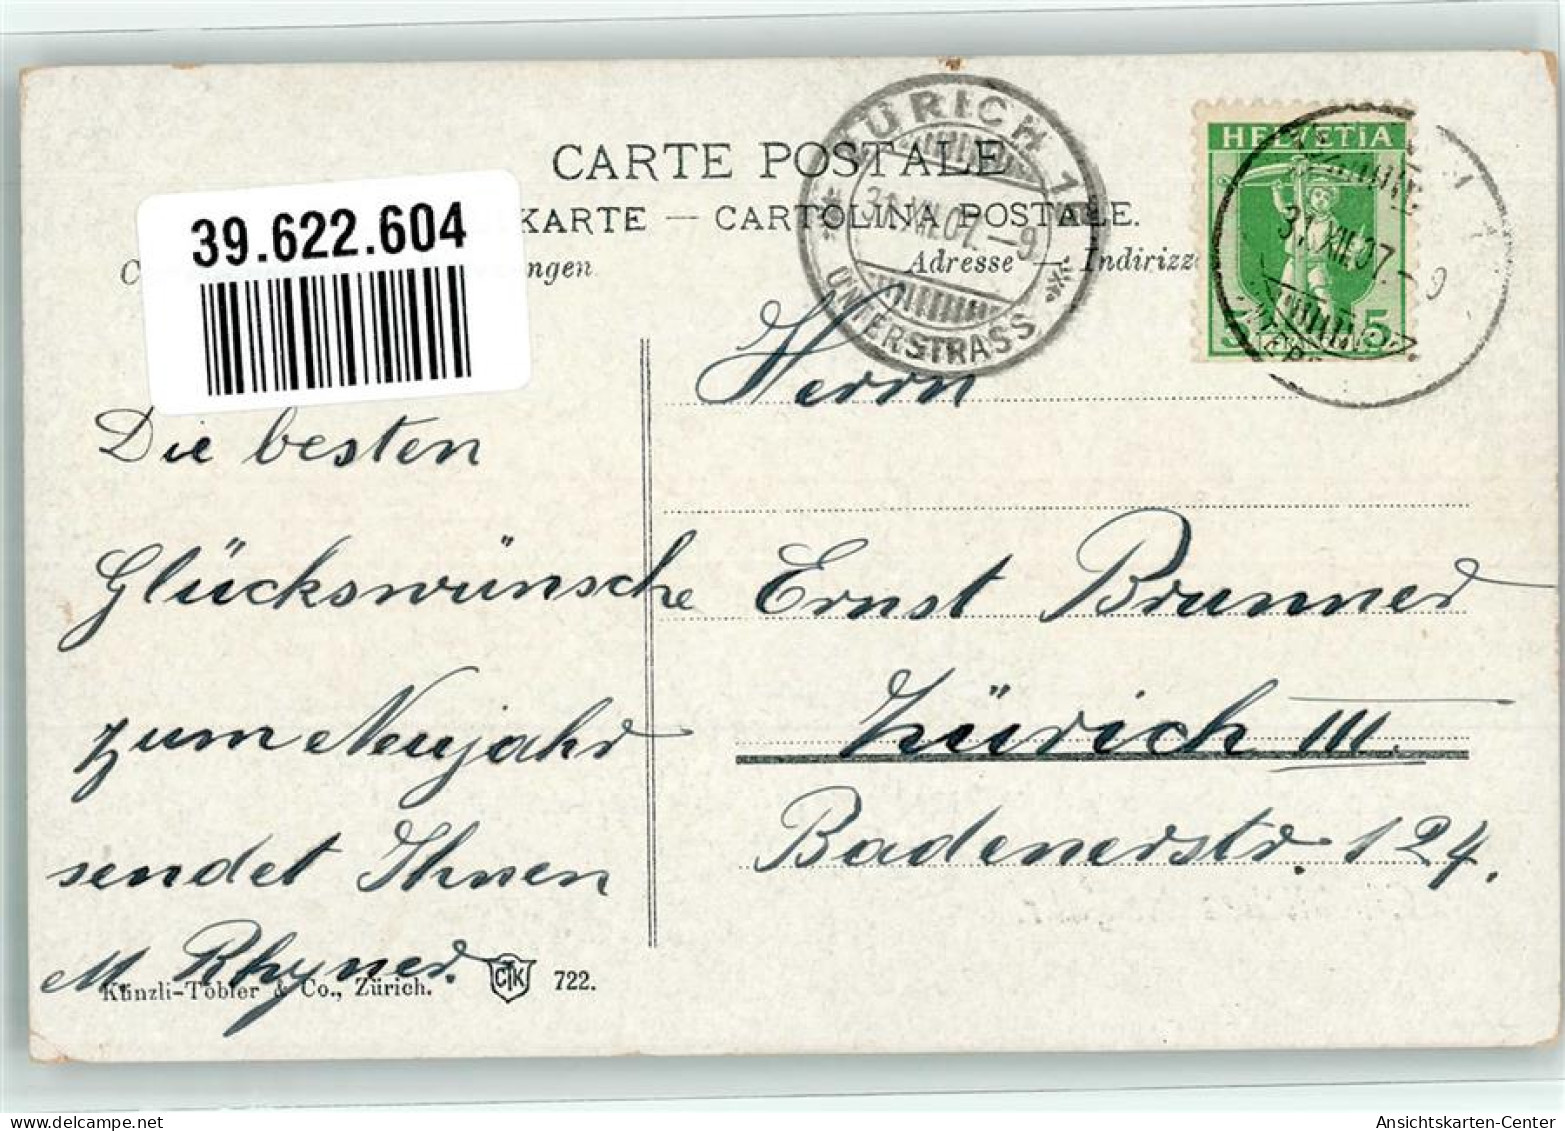 CARTE POSTALE
39.622.604
KARTE — CARTOLINA POSTALE.
ngen
Adresse — Indirizzo
ZÜRICH 1
31.XII.07.-9
UNTERSTRASS
HELVETIA
31.XII.07.-9
5 5
Die besten
Glückswünsche
zum Neujahr
sendet Ihnen
M. Rhyner.
Herrn
Ernst Brunner
Zürich III.
Badenerstr. 124.
Künzli-Tobler & Co., Zürich. CTK 722.
delcampe.net
Ansichtskarten-Center